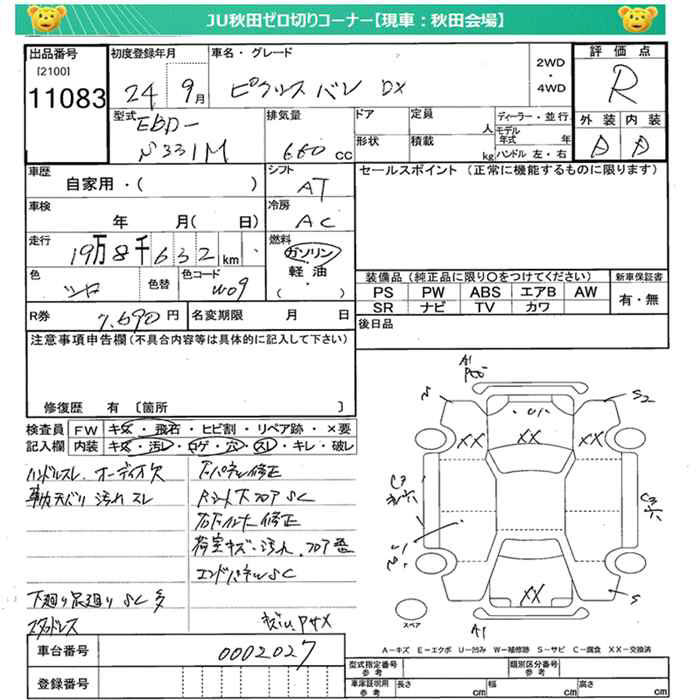 JU秋田ゼロ切りコーナー【現車：秋田会場】
出品番号
[2100]
11083
初度登録年月
24 9月
車名・グレード
ピクシス バン DX
2WD
・
4WD
評価点
R
型式
EBD-
S331M
排気量
660 cc
ドア
定員
人
形状
積載
kg
ディーラー・並行
モデル
年式 年
ハンドル 左・右
外装 内装
D D
車歴
自家用・( )
シフト
AT
セールスポイント (正常に機能するものに限ります)
車検
年 月( 日)
冷房
AC
走行
19万8千632km
燃料
ガソリン
・
軽油
・
( )
色
色替
色コード
W09
装備品(純正品に限り○をつけてください)
PS PW ABS エアB AW
SR ナビ TV カワ
新車保証書
有・無
R券
7,690円
名変期限 月 日
後日品
注意事項申告欄(不具合内容等は具体的に記入して下さい)
修復歴 有 〔箇所 〕
検査員
記入欄
FW キズ・飛石・ヒビ割・リペア跡・×要
内装 キズ・汚レ・コゲ・穴・スレ・キレ・破レ
ハンドルスレ. オーディオ欠
汚れ スレ
下廻り足廻りSC多
スタッドレス
修正
フロアSC
修正
荷室キズ・汚れ.
エンドパネルSC
A1
S2
XX
XX
XX
C3
C3
XX
S
A1
スペア
A－キズ E－エクボ U－凹み W－補修跡 S－サビ C－腐食 XX－交換済
車台番号
0002027
登録番号
型式指定番号
参考
類別区分番号
参考
車庫証明用
参考
長さ cm
幅 cm
高さ cm